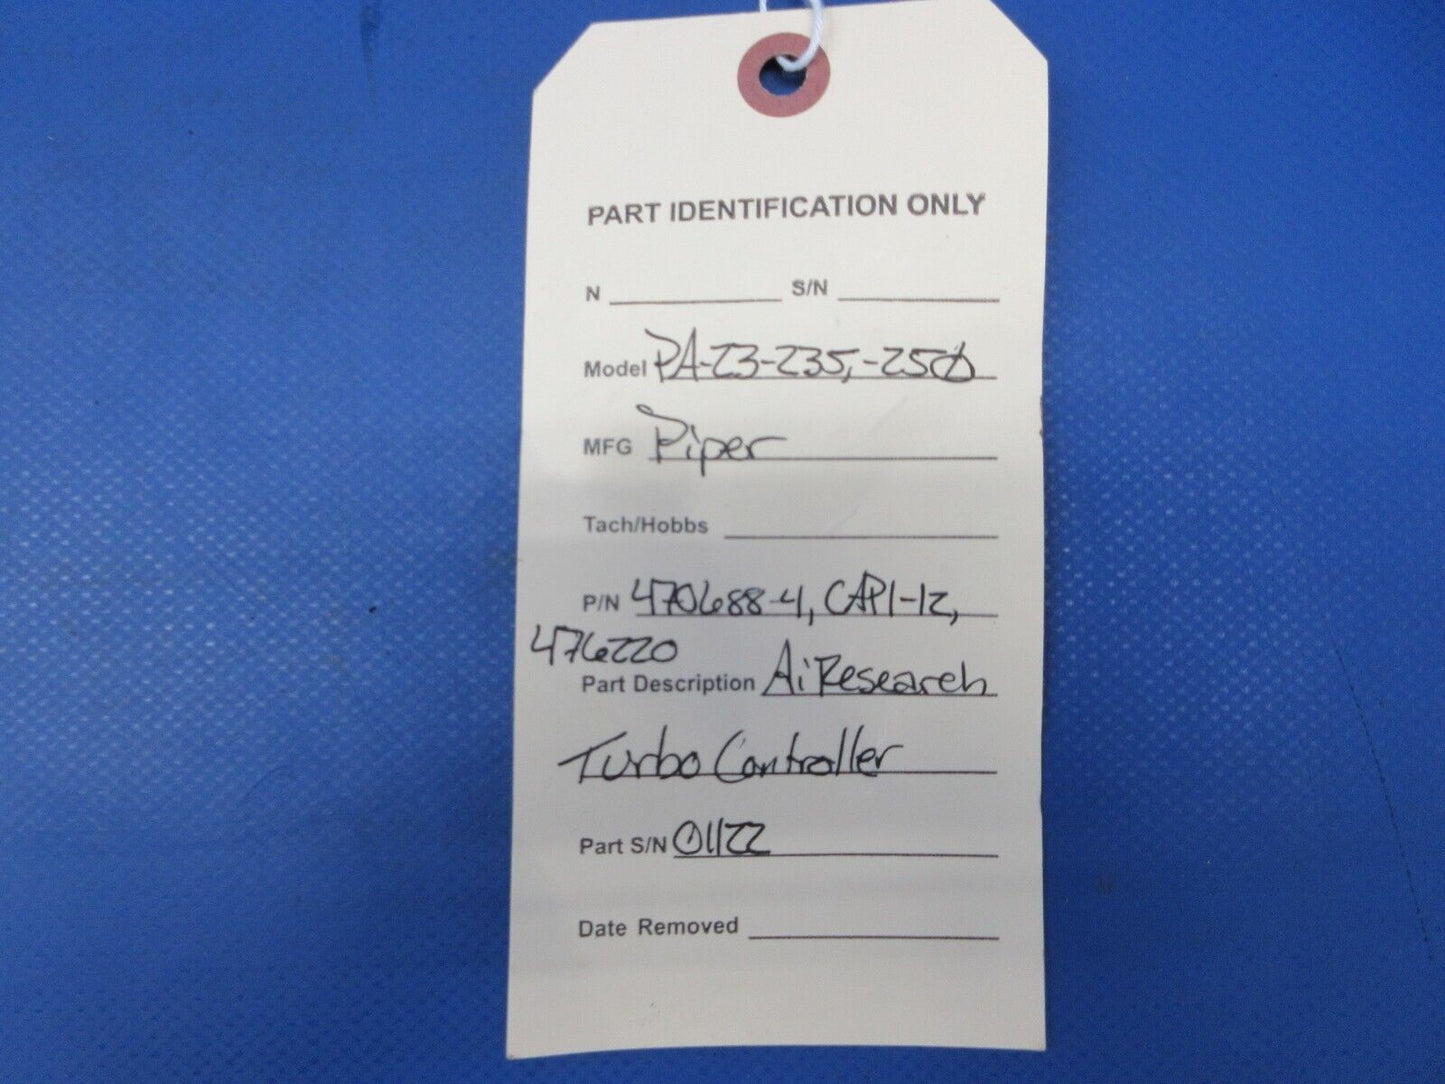 PART IDENTIFICATION ONLY
N S/N
Model PA-23-235, -250
MFG Piper
Tach/Hobbs
P/N 470688-4, CAP1-12,
476220
Part Description AiResearch
Turbo Controller
Part S/N 01122
Date Removed